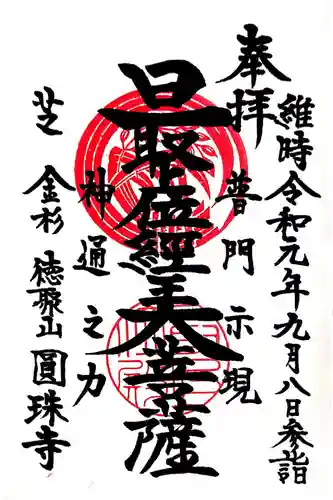 奉拝
維時令和元年九月八日参詣
普門示現
最上位経王大菩薩
神通之力
芝金杉
徳聚山圓珠寺